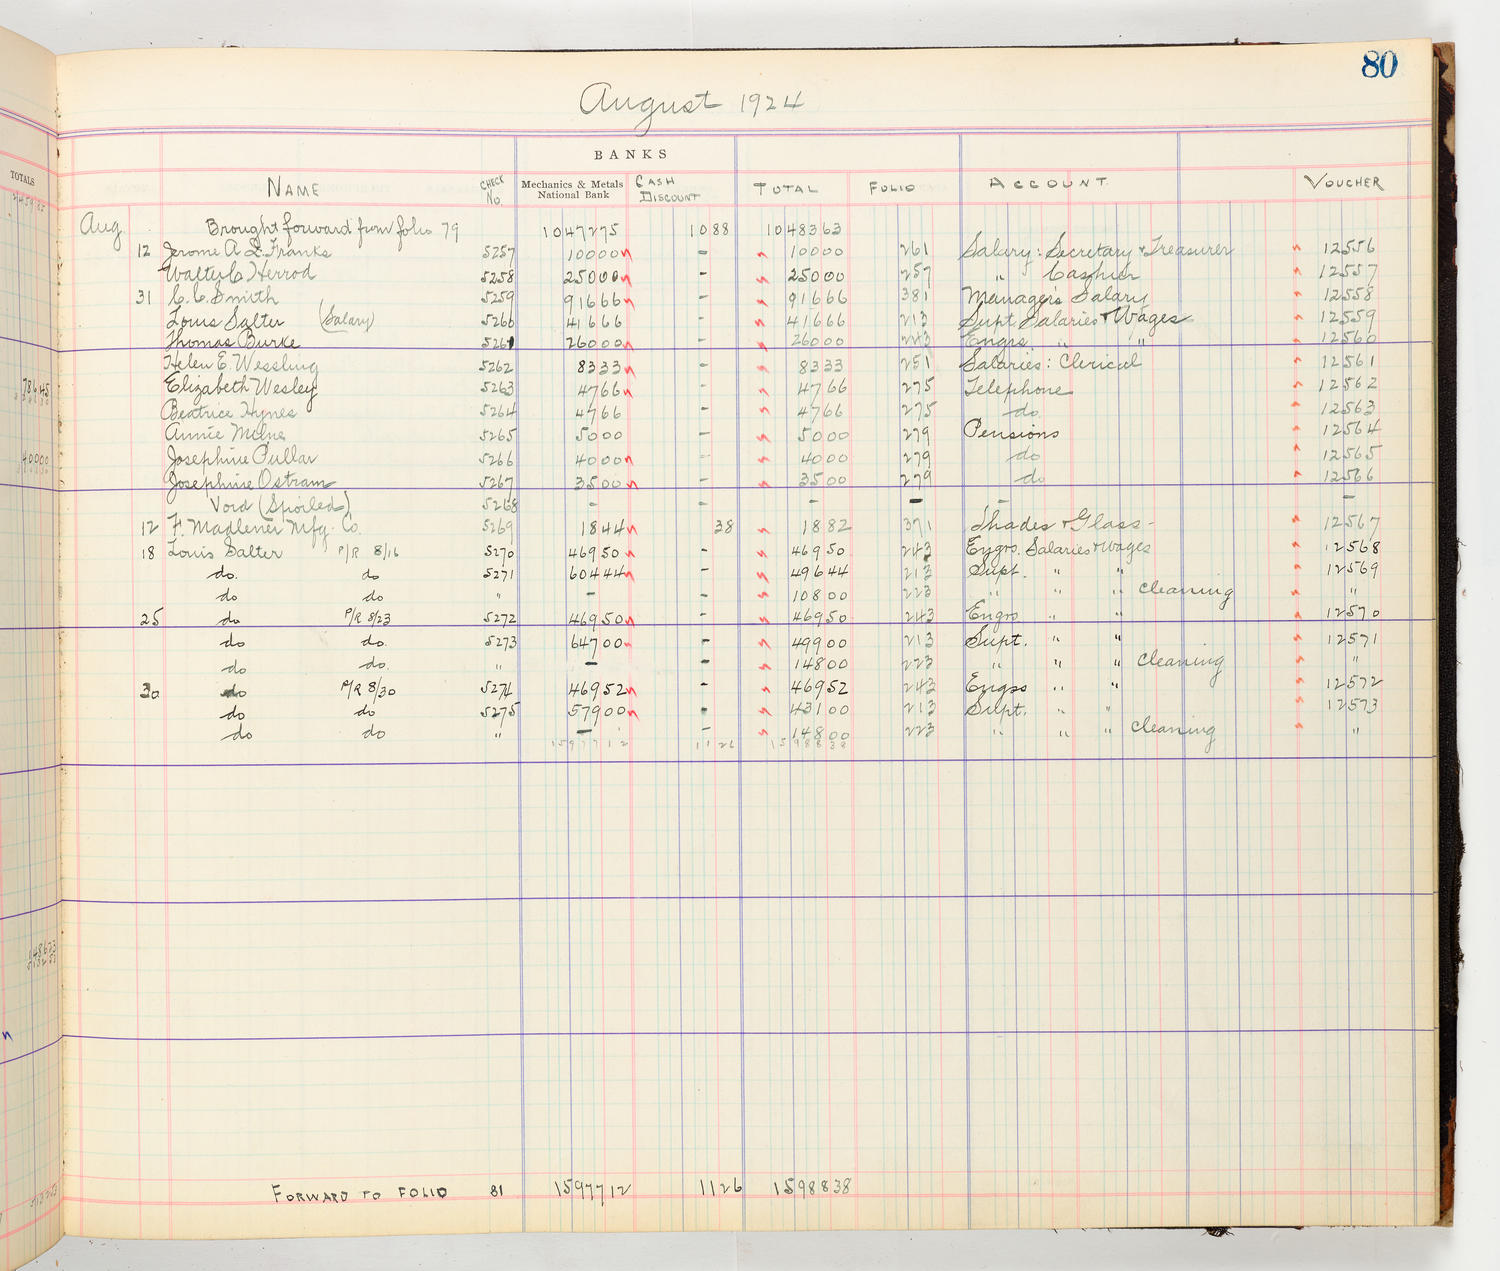 80
August 1924
BANKS
TOTALS
NAME CHECK No. Mechanics & Metals National Bank CASH DISCOUNT TOTAL FOLIO ACCOUNT. VOUCHER
Aug Brought forward from folio 79 1047275 1088 1048363
12 Jerome A. L. Franks 5257 10000 - 10000 261 Salary: Secretary & Treasurer 12556
Walter C. Herrod 5258 25000 - 25000 257 " Cashier 12557
31 C. C. Smith 5259 91666 - 91666 381 Manager's Salary 12558
Louis Salter (Salary) 5260 41666 - 41666 213 Supt. Salaries & Wages 12559
Thomas Burke 5261 26000 - 26000 243 Engrs. " " 12560
Helen E. Wessling 5262 8333 - 8333 251 Salaries: Clerical 12561
Elizabeth Wesley 5263 4766 - 4766 275 Telephone 12562
Beatrice Hynes 5264 4766 - 4766 275 do 12563
Annie Milne 5265 5000 - 5000 279 Pensions 12564
Josephine Pullar 5266 4000 - 4000 279 do 12565
Josephine Ostram 5267 3500 - 3500 279 do 12566
Void (Spoiled) 5268 - - - - - -
12 F. Madlener Mfg. Co. 5269 1844 38 1882 371 Shades & Glass - 12567
18 Louis Salter P/R 8/16 5270 46950 - 46950 243 Engrs. Salaries & Wages 12568
do. do 5271 60444 - 49644 213 Supt. " " 12569
do do " - - 10800 223 " " " cleaning "
25 do P/R 8/23 5272 46950 - 46950 243 Engrs " " 12570
do do. 5273 64700 - 49900 213 Supt. " " 12571
do do. " - - 14800 223 " " " cleaning "
30 do P/R 8/30 5274 46952 - 46952 243 Engrs " " 12572
do do 5275 57900 - 43100 213 Supt. " " 12573
do do " - - 14800 223 " " " cleaning "
1597712 1126 1598838
FORWARD TO FOLIO 81 1597712 1126 1598838